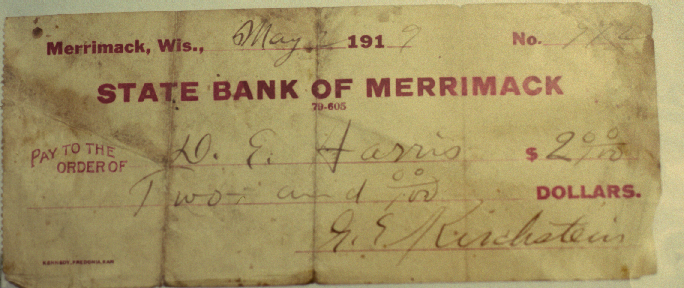 Merrimack, Wis., May 2 1919 No.
STATE BANK OF MERRIMACK
79-605
PAY TO THE ORDER OF D. E. Harris $ 2 00/100
Two and 00/100 DOLLARS.
G. E. Kirchstein